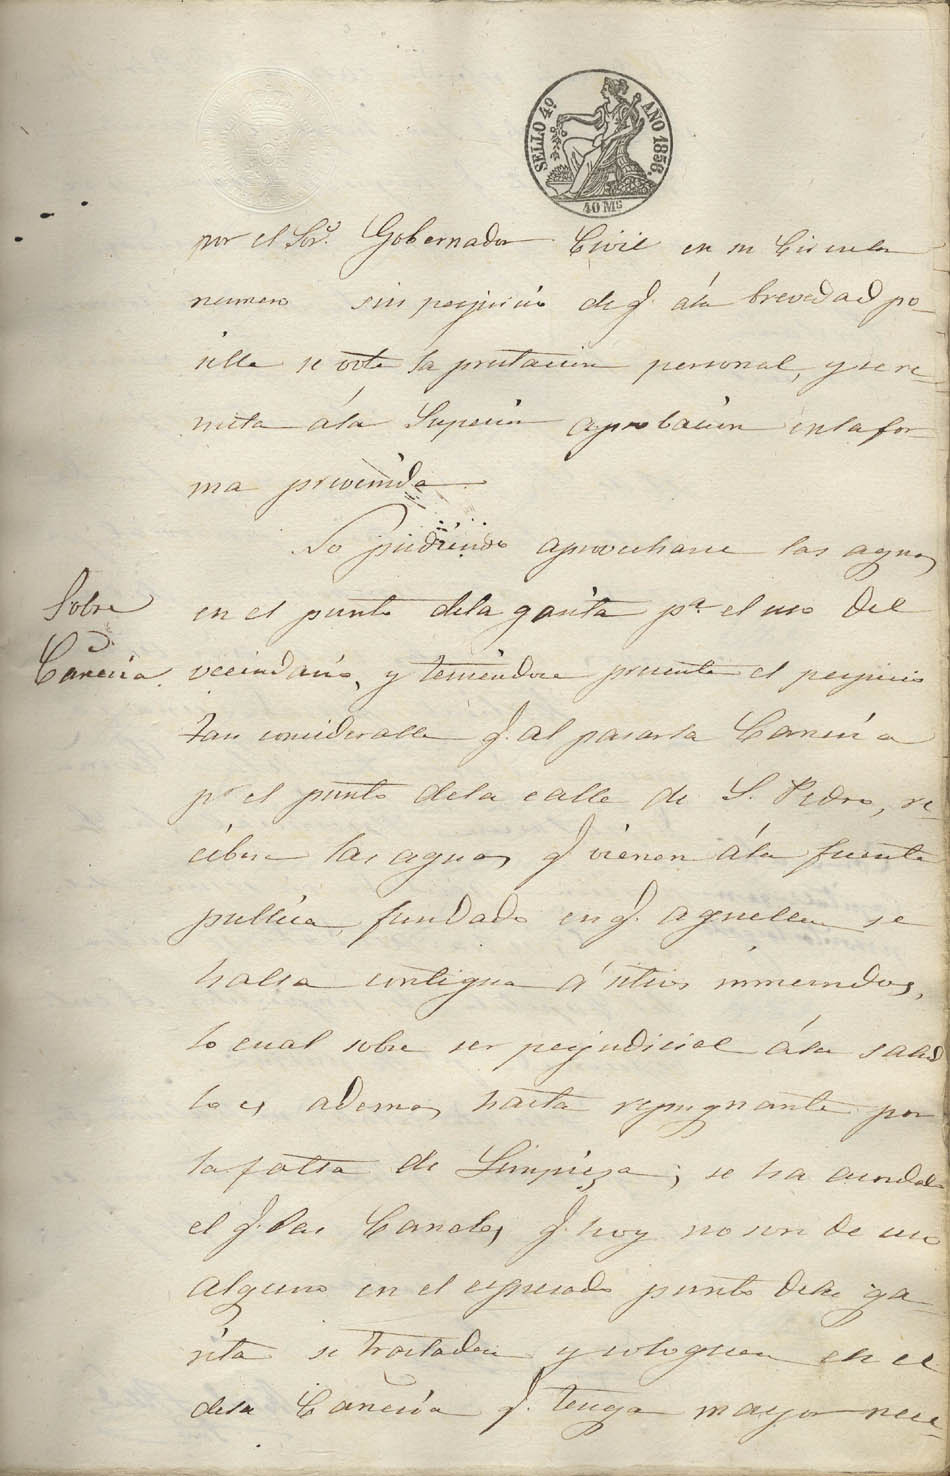 SELLO 4º AÑO 1856.
40 Ms
por el Sor. Gobernador Civil en su Circular
numero sin perjuicio de q. ála brevedad po-
sible se vote la prestacion personal, y se re-
mita ála Superior aprobacion en la for-
ma prevenida.
No pudiendo aprovecharse las aguas
Sobre
Cañeria.
en el punto dela garita pa. el uso del
vecindario, y teniendose presente el perjuicio
tan considerable q. al pasar la Cañeria
pr el punto dela calle de S. Pedro, re-
ciben las aguas q. vienen ála fuente
publica, fundado en q. aquella se
halla contigua á sitios inmundos,
lo cual sobre ser perjudicial ála salud
lo es ademas hasta repugnante por
la falta de Limpieza; se ha acordado
el q. las Canales q. hoy no son de uso
alguno en el espresado punto dela ga-
rita se trasladen y coloquen en el
dela Cañeria q. tenga mayor nece-